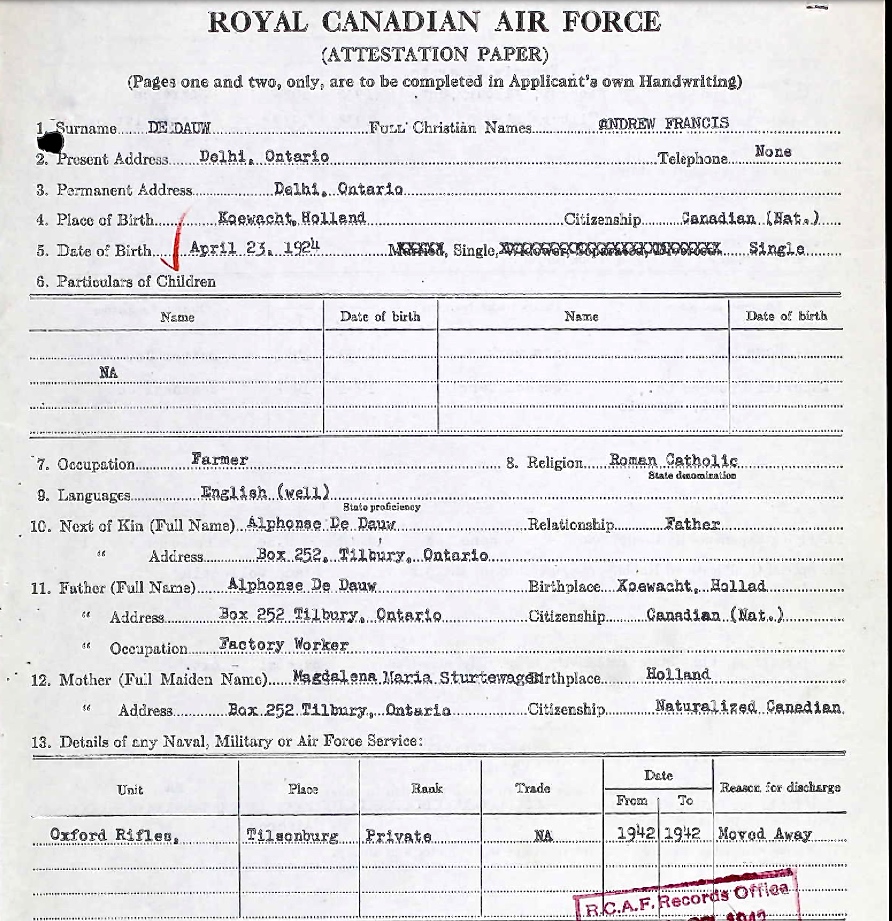 ROYAL CANADIAN AIR FORCE
(ATTESTATION PAPER)
(Pages one and two, only, are to be completed in Applicant's own Handwriting)
1. Surname DE DAUW Full Christian Names ANDREW FRANCIS
2. Present Address Delhi, Ontario Telephone None
3. Permanent Address Delhi, Ontario
4. Place of Birth Koewacht, Holland Citizenship Canadian (Nat.)
5. Date of Birth April 23, 1924 Married, Single, Widower, Separated, Divorced. Single
6. Particulars of Children
Name Date of birth Name Date of birth
NA
7. Occupation Farmer 8. Religion Roman Catholic
State denomination
9. Languages English (well)
State proficiency
10. Next of Kin (Full Name) Alphonse De Dauw Relationship Father
" Address Box 252, Tilbury, Ontario
11. Father (Full Name) Alphonse De Dauw Birthplace Koewacht, Hollad
" Address Box 252 Tilbury, Ontario Citizenship Canadian (Nat.)
" Occupation Factory Worker
12. Mother (Full Maiden Name) Magdalena Maria Sturtewagen Birthplace Holland
" Address Box 252 Tilbury, Ontario Citizenship Naturalized Canadian
13. Details of any Naval, Military or Air Force Service:
Unit Place Rank Trade Date Reason for discharge
From To
Oxford Rifles, Tilsonburg Private NA 1942 1942 Moved Away
R.C.A.F. Records Office